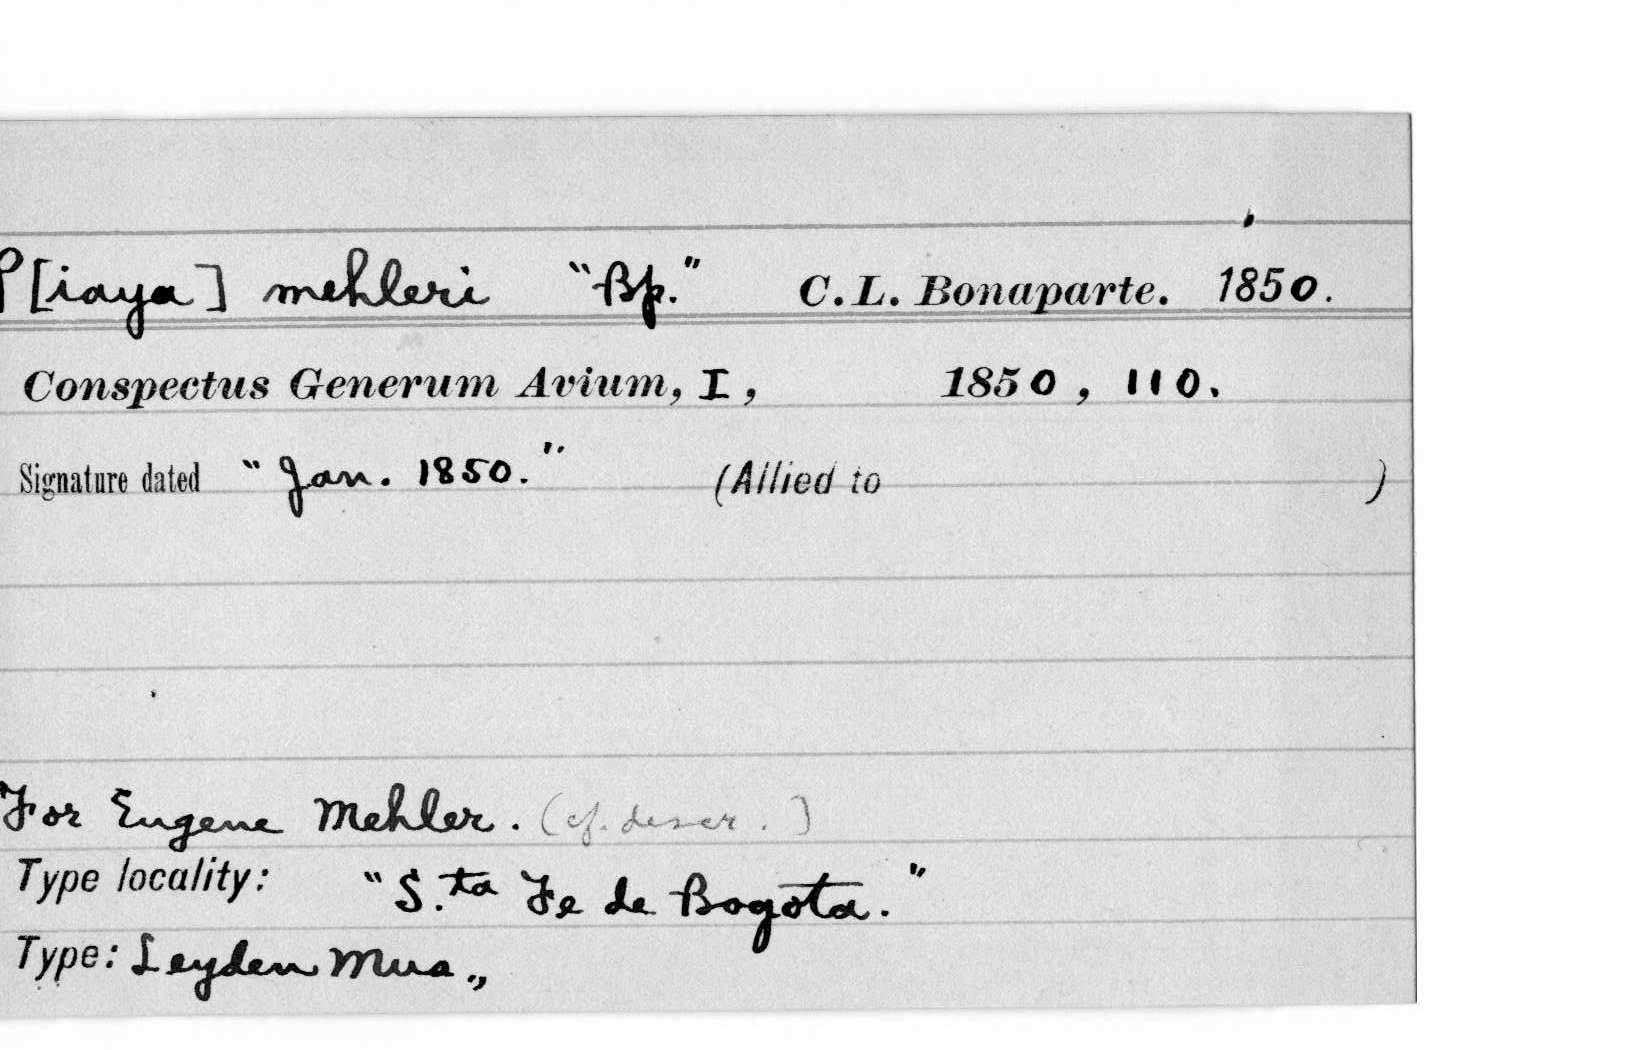 P[iaya] mehleri "Bp." C. L. Bonaparte. 1850.
Conspectus Generum Avium, I, 1850, 110.
Signature dated "Jan. 1850." (Allied to )
For Eugene Mehler. (cf. descr.)
Type locality: "S.ta Fe de Bogota."
Type: Leyden Mus.,